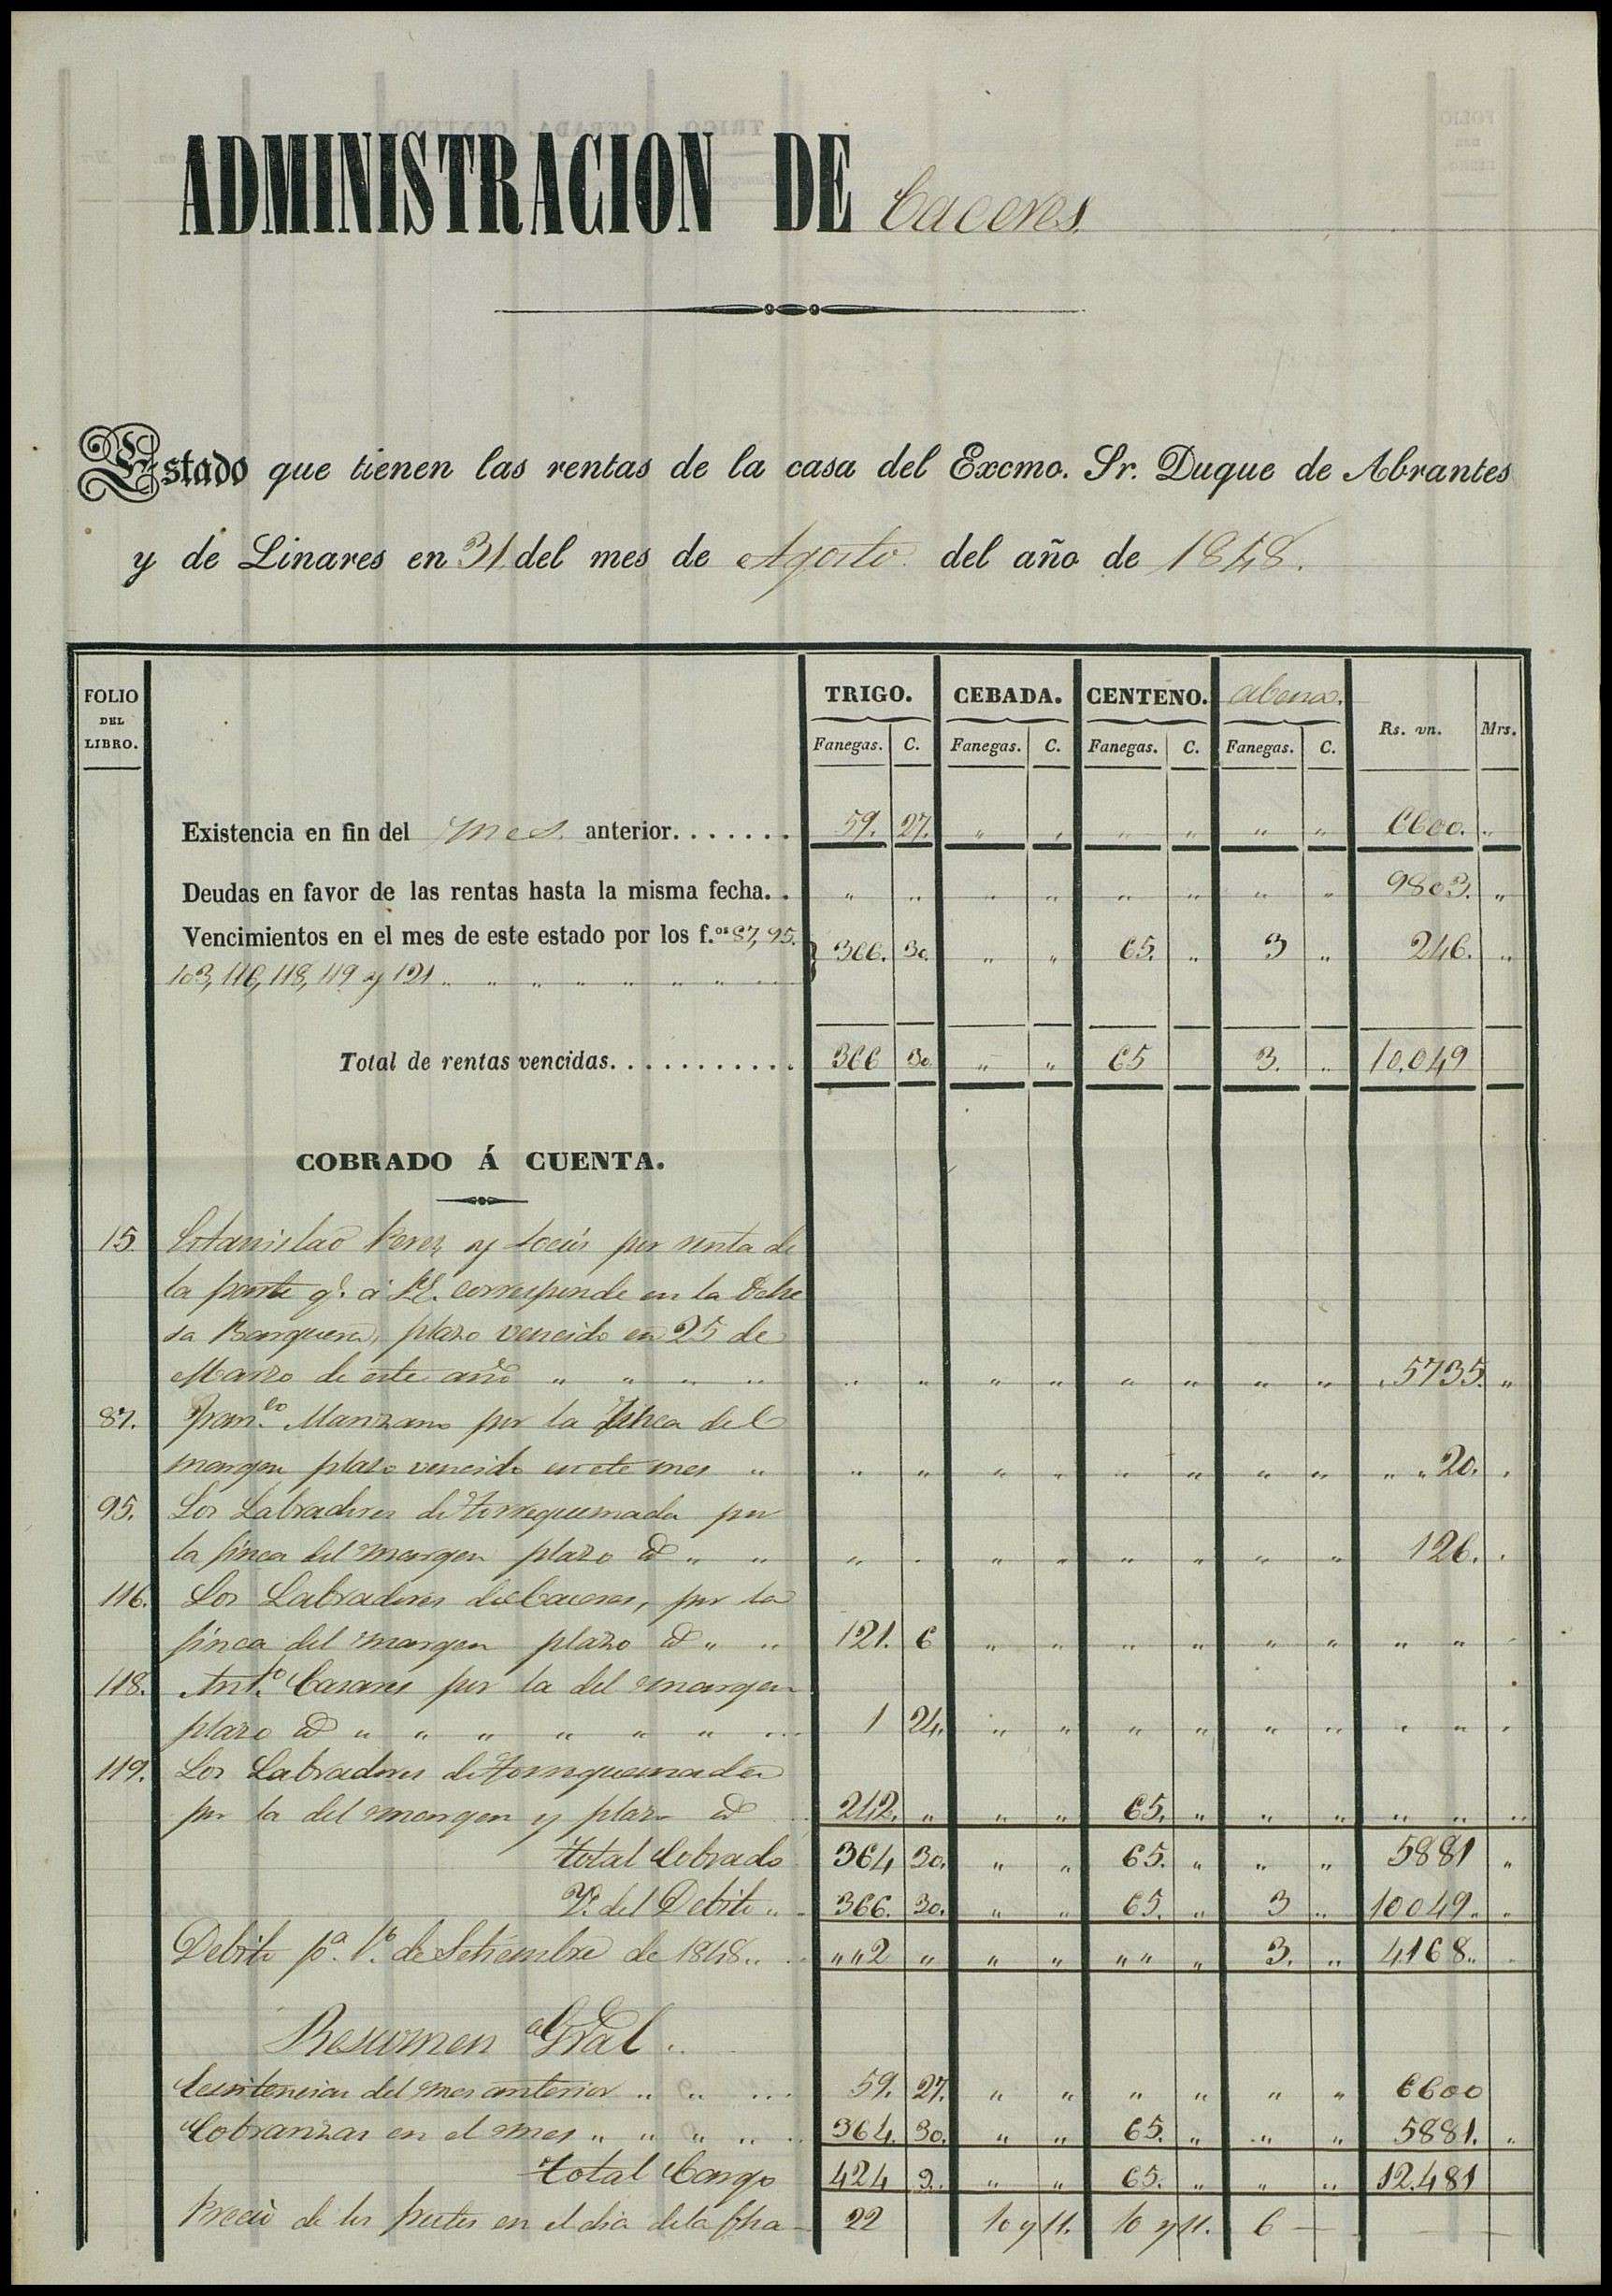 ADMINISTRACION DE Caceres.
Estado que tienen las rentas de la casa del Excmo. Sr. Duque de Abrantes
y de Linares en 31 del mes de Agosto del año de 1848.
FOLIO DEL LIBRO. TRIGO. CEBADA. CENTENO. abena. Rs. vn. Mrs.
Fanegas. C. Fanegas. C. Fanegas. C. Fanegas. C.
Existencia en fin del mes anterior....... 59. 27. " " " " " " 6600. "
Deudas en favor de las rentas hasta la misma fecha.. " " " " " " " " 9803. "
Vencimientos en el mes de este estado por los f.os 87, 95.
103, 116, 118, 119 y 121 " " " " " " " " 366. 30. " " 65. " 3 " 246. "
Total de rentas vencidas........... 366 30 " " 65 3. " 10.049
COBRADO Á CUENTA.
15. Estanislao Perez y Socios por renta de
la parte q.e á S.E. corresponde en la Dehe
sa Barquera, plazo vencido en 25 de
Marzo de este año " " " " " " " " " " " " 5735. "
87. Fran.co Manzano por la finca del
margen plazo vencido en este mes " " " " " " " " " " " 20. "
95. Los Labradores de Torrequemada por
la finca del margen plazo id " " " " " " " " " " 126. "
116. Los Labradores de Caceres, por la
finca del margen plazo id " " 121. 6 " " " " " " " " "
118. Ant.o Casares por la del margen
plazo id " " " " " " " 1 24. " " " " " " " " "
119. Los Labradores de Torrequemada
por la del margen y plazo id 212. " " " 65. " " " " " "
Total Cobrado 364 30. " " 65. " " " 5881 "
Y.e del Debito " 366. 30. " " 65. " 3 " 10049. "
Debito p.a 1.o de Setiembre de 1848. " " 2 " " " " " " 3. " 4168. "
Resumen Gral
Existencias del mes anterior " " " 59. 27. " " " " " " 6600
Cobranzas en el mes " " " " " 364. 30. " " 65. " " " 5881. "
Total Cargo 424 9. " " 65. " " " 12.481
Precio de los frutos en el dia de la fha 22 10 y 11. 10 y 11. 6